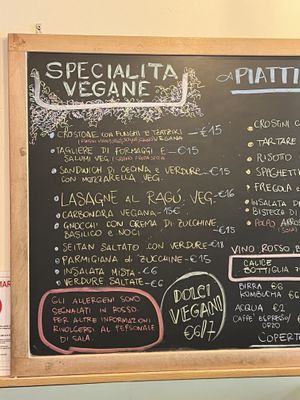 SPECIALITA
VEGANE
CROSTONE CON FUNGHI E TZATZIKI VEGANA —€15
TAGLIERE DI FORMAGGI E —€15
SALUMI VEG.
SANDWICH DI CECINA E VERDURE —€15
CON MOZZARELLA VEG.
LASAGNE AL RAGÚ VEG —€16
CARBONARA VEGANA — 15€
GNOCCHI CON CREMA DI ZUCCHINE €15
BASILICO E NOCI
SEITAN SALTATO CON VERDURE —€18
PARMIGIANA DI ZUCCHINE —€15
INSALATA MISTA —€6
VERDURE SALTATE —€6
GLI ALLERGENI SONO
SEGNALATI IN ROSSO.
PER ALTRE INFORMAZIONI
RIVOLGERSI AL PERSONALE
DI SALA.
DOLCI
VEGANI
€6/7
PIATTI
CROSTINI
TARTARE
RISOTTO
SPAGHETTI
FREGOLA
INSALATA DI
BISTECCA DI
POLPO ARROS
VINO ROSSO B
CALICE
BOTTIGLIA
BIRRA €6
KOMBUCHA €6
ACQUA €2
CAFFE' ESPRESSO/
ORZO
COPERTO